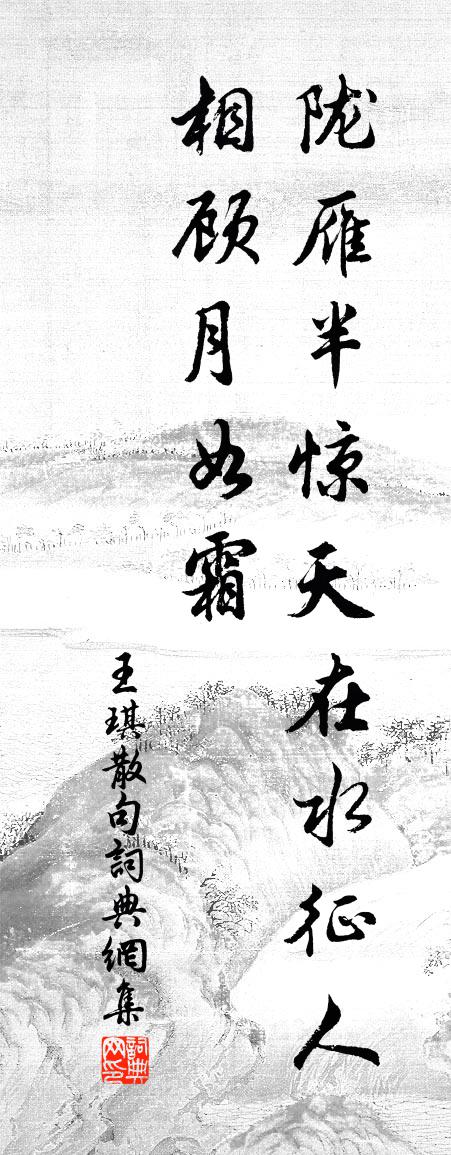 陇雁半惊天在水征人
相顾月如霜
王琪散句詞典網集
詞典网印